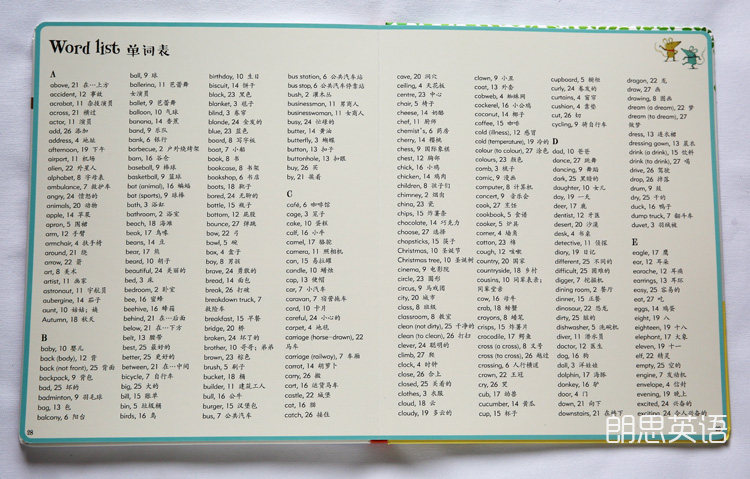 Word list 单词表
A
above, 21 在…上方
accident, 12 事故
acrobat, 11 杂技演员
across, 21 横过
actor, 11 演员
add, 26 添加
address, 4 地址
afternoon, 19 下午
airport, 11 机场
alien, 22 外星人
alphabet, 8 字母表
ambulance, 7 救护车
angry, 24 愤怒的
animals, 20 动物
apple, 14 苹果
apron, 5 围裙
arm, 12 手臂
armchair, 4 扶手椅
around, 21 绕
arrow, 22 箭
art, 8 美术
artist, 11 画家
astronaut, 11 宇航员
aubergine, 14 茄子
aunt, 10 姑姑; 姨
Autumn, 18 秋天
B
baby, 10 婴儿
back (body), 12 背
back (not front), 25 背面
backpack, 9 背包
bad, 25 坏的
badminton, 9 羽毛球
bag, 13 包
balcony, 6 阳台
ball, 9 球
ballerina, 11 芭蕾舞
女演员
ballet, 9 芭蕾舞
balloon, 10 气球
banana, 14 香蕉
band, 9 乐队
bank, 6 银行
barbecue, 2 户外烧烤架
barn, 16 谷仓
baseball, 9 棒球
basketball, 9 篮球
bat (animal), 16 蝙蝠
bat (sports), 9 球棒
bath, 3 浴缸
bathroom, 2 浴室
beach, 18 海滩
beak, 17 鸟喙
beans, 14 豆
bear, 17 熊
beard, 10 胡子
beautiful, 24 美丽的
bed, 3 床
bedroom, 2 卧室
bee, 16 蜜蜂
beehive, 16 蜂箱
behind, 21 在…后面
below, 21 在…下方
belt, 13 腰带
best, 25 最好的
better, 25 更好的
between, 21 在…中间
bicycle, 7 自行车
big, 25 大的
bill, 15 账单
bin, 5 垃圾桶
birds, 16 鸟
birthday, 10 生日
biscuit, 14 饼干
black, 23 黑色
blanket, 3 毯子
blind, 3 卷帘
blonde, 24 金发的
blue, 23 蓝色
board, 8 写字板
boat, 7 小船
book, 8 书
bookcase, 8 书架
bookshop, 6 书店
boots, 18 靴子
bored, 24 无聊的
bottle, 15 瓶子
bottom, 12 屁股
bounce, 27 弹跳
bow, 22 弓
bowl, 5 碗
box, 4 盒子
boy, 8 男孩
brave, 24 勇敢的
bread, 14 面包
break, 26 打破
breakdown truck, 7
救险车
breakfast, 15 早餐
bridge, 20 桥
broken, 24 坏了的
brother, 10 哥哥; 弟弟
brown, 23 棕色
brush, 5 刷子
bucket, 18 桶
builder, 11 建筑工人
bull, 16 公牛
burger, 15 汉堡包
bus, 7 公共汽车
bus station, 6 公共汽车站
bus stop, 6 公共汽车停靠站
bush, 2 灌木丛
businessman, 11 男商人
businesswoman, 11 女商人
busy, 24 忙碌的
butter, 14 黄油
butterfly, 3 蝴蝶
button, 13 扣子
buttonhole, 13 扣眼
buy, 26 买
by, 21 挨着
C
café, 6 咖啡馆
cage, 3 笼子
cake, 10 蛋糕
calf, 16 小牛
camel, 17 骆驼
camera, 11 照相机
can, 15 易拉罐
candle, 10 蜡烛
cap, 13 便帽
car, 7 小汽车
caravan, 7 宿营拖车
card, 10 卡片
careful, 24 小心的
carpet, 4 地毯
carriage (horse-drawn), 22
马车
carriage (railway), 7 车厢
carrot, 14 胡萝卜
carry, 26 搬
cart, 16 运货马车
castle, 22 城堡
cat, 16 猫
catch, 26 接住
cave, 20 洞穴
ceiling, 4 天花板
centre, 23 中心
chair, 5 椅子
cheese, 14 奶酪
chef, 11 厨师
chemist's, 6 药房
cherry, 14 樱桃
chess, 9 国际象棋
chest, 12 胸部
chick, 16 小鸡
chicken, 14 鸡肉
children, 8 孩子们
chimney, 2 烟囱
china, 23 瓷
chips, 15 炸薯条
chocolate, 14 巧克力
choose, 27 选择
chopsticks, 15 筷子
Christmas, 10 圣诞节
Christmas tree, 10 圣诞树
cinema, 9 电影院
circle, 23 圆形
circus, 9 马戏团
city, 20 城市
class, 8 班级
classroom, 8 教室
clean (not dirty), 25 干净的
clean (to clean), 26 打扫
clever, 24 聪明的
climb, 27 爬
clock, 4 时钟
close, 26 合上
closed, 25 关着的
clothes, 3 衣服
cloud, 18 云
cloudy, 19 多云的
clown, 9 小丑
coat, 13 外套
cobweb, 4 蜘蛛网
cockerel, 16 小公鸡
coconut, 14 椰子
coffee, 15 咖啡
cold (illness), 12 感冒
cold (temperature), 19 冷的
colour (to colour), 27 涂色
colours, 23 颜色
comb, 3 梳子
comic, 9 漫画
computer, 8 计算机
concert, 9 音乐会
cook, 27 烹饪
cookbook, 5 食谱
cooker, 5 炉具
corner, 4 墙角
cotton, 23 棉
cough, 12 咳嗽
country, 20 国家
countryside, 18 乡村
cousins, 10 同辈表亲;
同辈堂亲
cow, 16 母牛
crab, 18 螃蟹
crayons, 8 蜡笔
crisps, 15 炸薯片
crocodile, 17 鳄鱼
cross (a cross), 8 叉号
cross (to cross), 26 越过
crossing, 6 人行横道
crown, 22 王冠
cry, 26 哭
cub, 17 幼兽
cucumber, 14 黄瓜
cup, 15 杯子
cupboard, 5 橱柜
curly, 24 卷发的
curtains, 4 窗帘
cushion, 4 靠垫
cut, 26 切
cycling, 9 骑自行车
D
dad, 10 爸爸
dance, 27 跳舞
dancing, 9 舞蹈
dark, 25 黑暗的
daughter, 10 女儿
day, 19 一天
deer, 17 鹿
dentist, 12 牙医
desert, 20 沙漠
desk, 4 书桌
detective, 11 侦探
diary, 19 日记
different, 25 不同的
difficult, 25 困难的
digger, 7 挖掘机
dining room, 2 餐厅
dinner, 15 正餐
dinosaur, 22 恐龙
dirty, 25 脏的
dishwasher, 5 洗碗机
diver, 11 潜水员
doctor, 12 医生
dog, 16 狗
doll, 3 洋娃娃
dolphin, 17 海豚
donkey, 16 驴
door, 4 门
down, 21 向下
downstairs, 21 在楼下
dragon, 22 龙
draw, 27 画
drawing, 8 图画
dream (a dream), 22 梦
dream (to dream), 27
做梦
dress, 13 连衣裙
dressing gown, 13 晨衣
drink (a drink), 15 饮料
drink (to drink), 27 喝
drive, 26 驾驶
drop, 26 掉落
drum, 9 鼓
dry, 25 干的
duck, 16 鸭子
dump truck, 7 翻斗车
duvet, 3 羽绒被
E
eagle, 17 鹰
ear, 12 耳朵
earache, 12 耳痛
earrings, 13 耳环
easy, 25 容易的
eat, 27 吃
eggs, 14 鸡蛋
eight, 19 八
eighteen, 19 十八
elephant, 17 大象
eleven, 19 十一
elf, 22 精灵
empty, 25 空的
engine, 7 发动机
envelope, 4 信封
evening, 19 晚上
excited, 24 兴奋的
exciting, 24 令人兴奋的
28
朗思英语